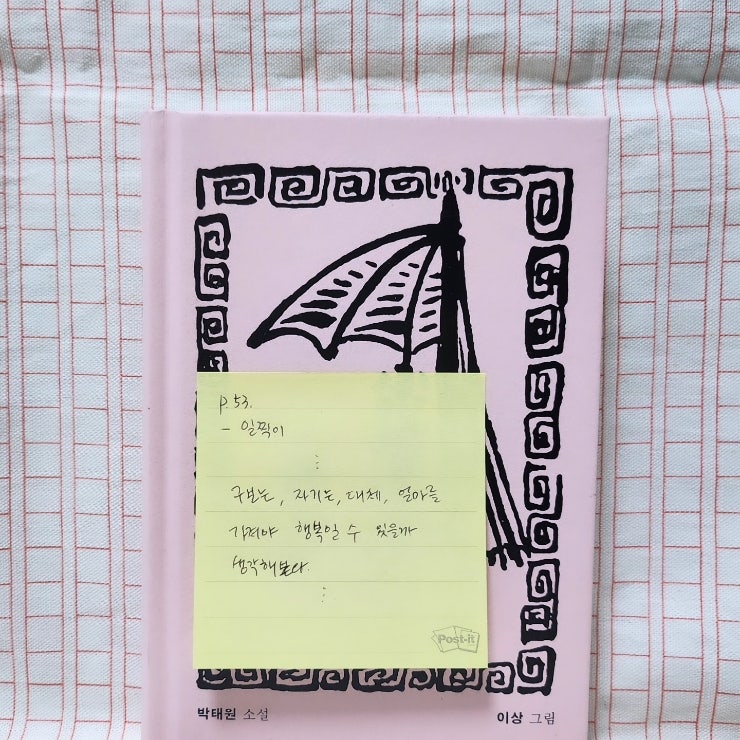 p.53.
- 일찍이
⋮
구보는, 자기는, 대체, 얼마를
가져야 행복일 수 있을까
생각해본다.
⋮
Post-it
박태원 소설
이상 그림